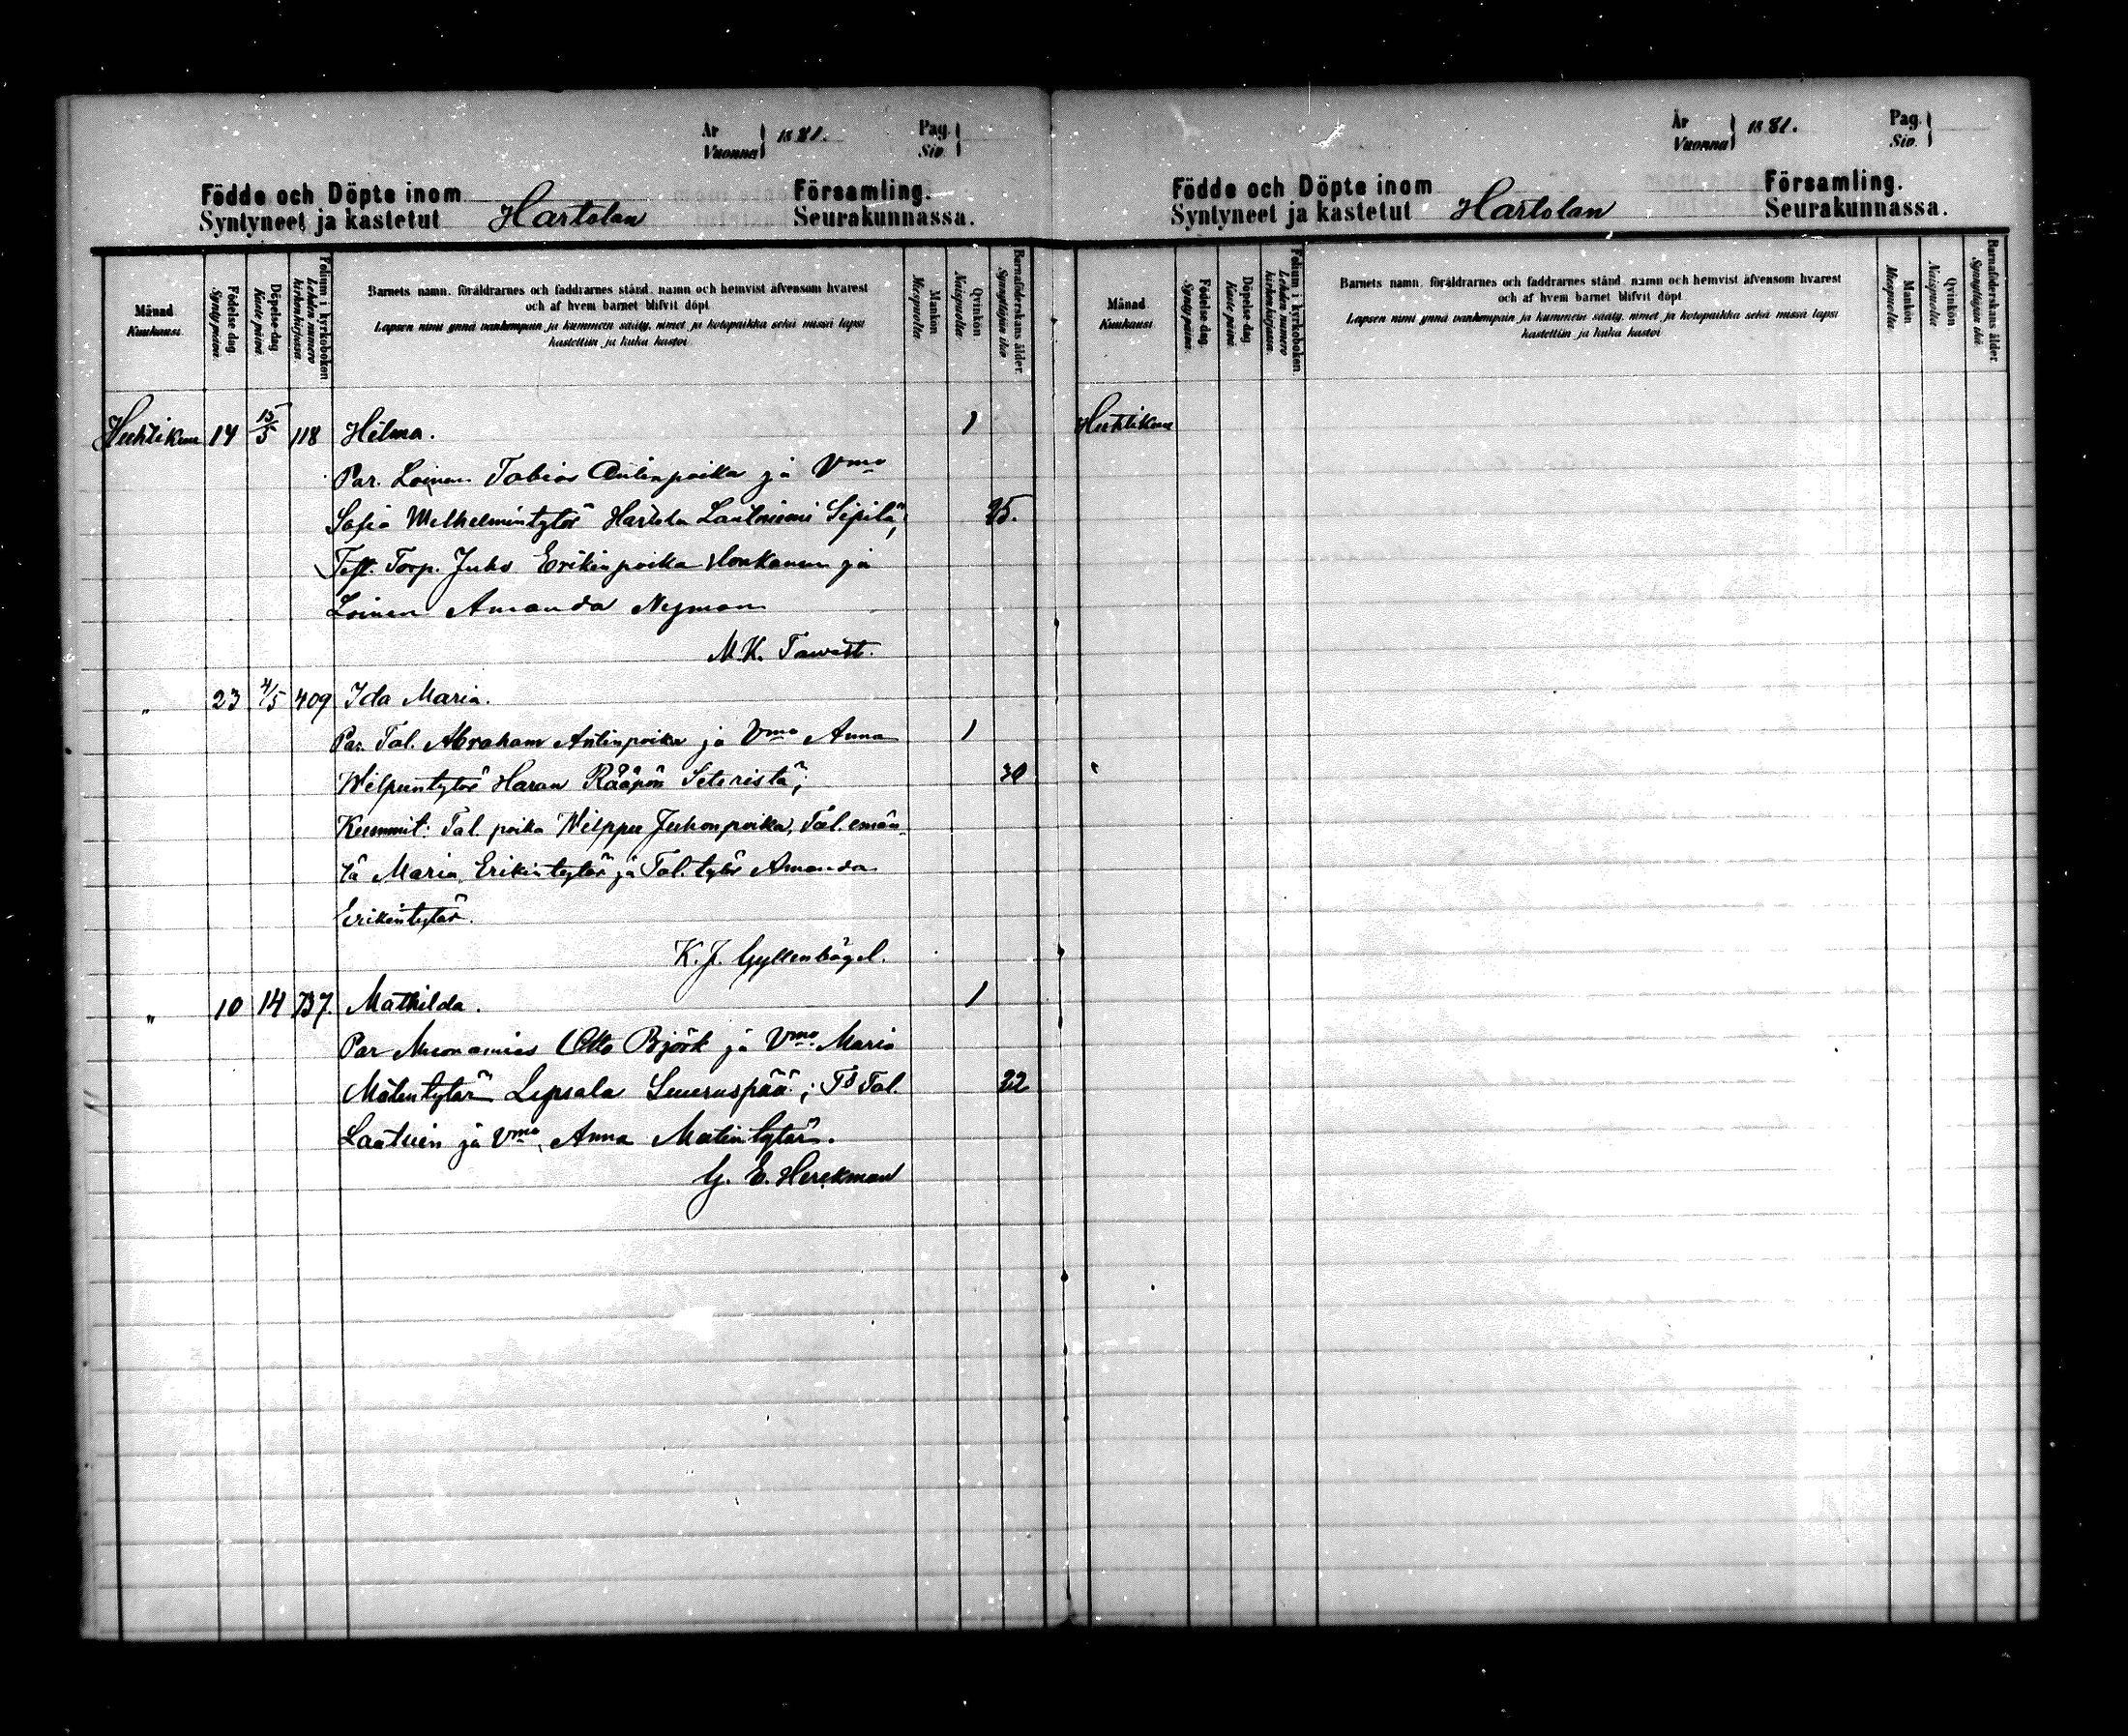 År
Vuonna } 1881.
Pag.
Siv. }
Födde och Döpte inom Församling.
Syntyneet ja kastetut Hartolan Seurakunnassa.
Månad
Kuukausi
Födelse dag
Synty päivä.
Döpelse dag
Kaste päivä
Folium i kyrkoboken
Lehden numero kirkonkirjassa.
Barnets namn, föräldrarnes och faddrarnes stånd, namn och hemvist äfvensom hvarest
och af hvem barnet blifvit döpt
Lapsen nimi ynnä vanhempain ja kummein sääty, nimet ja kotopaikka sekä missä lapsi
kastettiin ja kuka kastoi
Mankön
Miespuolta.
Qvinkön
Naispuolta
Barnaföderskans ålder.
Synnyttäjän ikä
Huhtikuu 14 15/5 118 Helma. 1
Par. Loinen Tobias Antinpoika ja Vmo
Sofia Wilhelmintytär Hartola Lautniemi Sipilä; 25.
Test. Torp. Juho Erikinpoika Honkanen ja
Loinen Amanda Nyman
M.K. Tawast.
" 23 4/5 409 Ida Maria.
Par. Tal. Abraham Antinpoika ja Vmo Anna 1
Wilpuntytär Haran Rååpön Seteristä; 30
Kummit: Tal. poika Wilppu Juhonpoika, Tal. emän-
tä Maria Erikintytär ja Tal. tytär Amanda
Erikintytär.
K. J. Gyllenbögel.
" 10 14 737. Mathilda. 1
Par Muonamies Otto Björk ja Vmo Maria
Matintytär Lepsala ; Ts Tal. 22
ja Vmo, Anna Matintytär.
G. E. Herckman
År
Vuonna } 1881.
Pag.
Siv. }
Födde och Döpte inom Församling.
Syntyneet ja kastetut Hartolan Seurakunnassa.
Månad
Kuukausi
Födelse dag.
Synty päivä.
Döpelse dag
Kaste päivä.
Folium i kyrkoboken.
Lehden numero kirkonkirjassa.
Barnets namn, föräldrarnes och faddrarnes stånd, namn och hemvist äfvensom hvarest
och af hvem barnet blifvit döpt
Lapsen nimi ynnä vanhempain ja kummein sääty, nimet ja kotopaikka sekä missä lapsi
kastettiin ja kuka kastoi
Mankön
Miespuolta
Qvinkön
Naispuolta.
Barnaföderskans ålder
Synnyttäjän ikä.
Huhtikuu
"